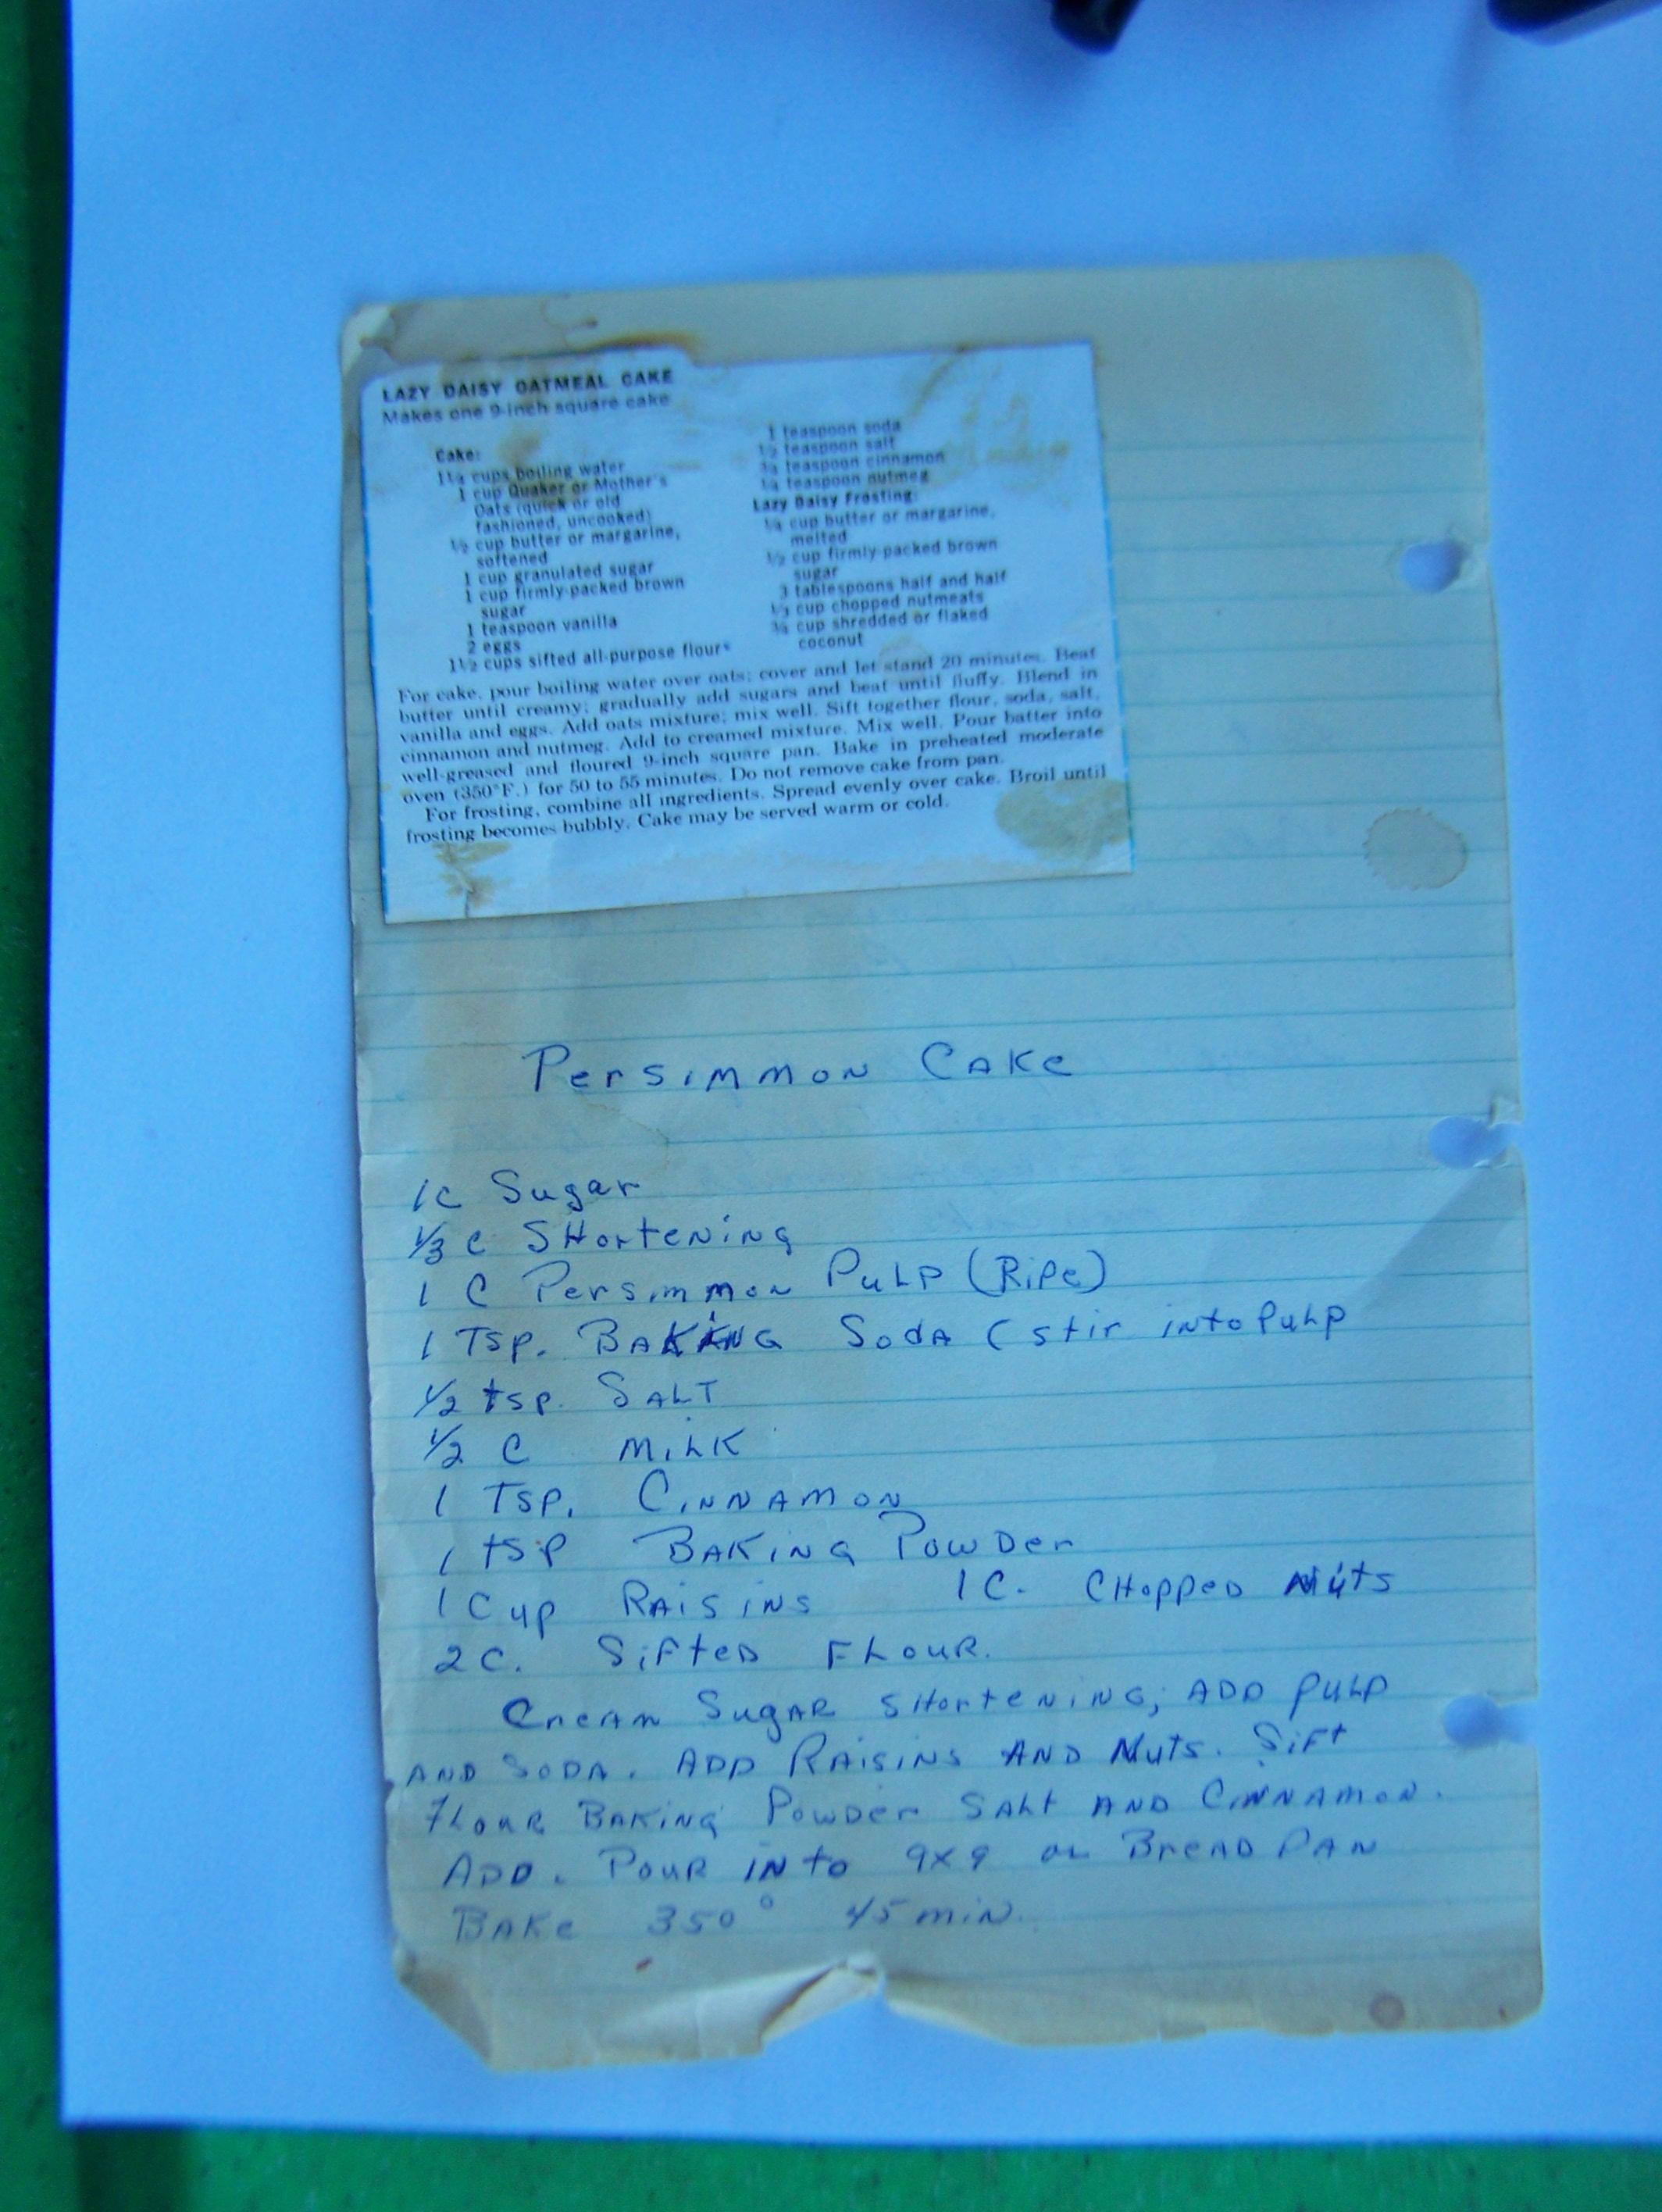 LAZY DAISY OATMEAL CAKE
Makes one 9-inch square cake
Cake:
1¼ cups boiling water
1 cup Quaker or Mother's
Oats (quick or old
fashioned, uncooked)
½ cup butter or margarine,
softened
1 cup granulated sugar
1 cup firmly-packed brown
sugar
1 teaspoon vanilla
2 eggs
1½ cups sifted all-purpose flour
1 teaspoon soda
½ teaspoon salt
¾ teaspoon cinnamon
¼ teaspoon nutmeg
Lazy Daisy Frosting:
¼ cup butter or margarine,
melted
½ cup firmly-packed brown
sugar
3 tablespoons half and half
⅓ cup chopped nutmeats
¾ cup shredded or flaked
coconut
For cake, pour boiling water over oats; cover and let stand 20 minutes. Beat
butter until creamy; gradually add sugars and beat until fluffy. Blend in
vanilla and eggs. Add oats mixture; mix well. Sift together flour, soda, salt,
cinnamon and nutmeg. Add to creamed mixture. Mix well. Pour batter into
well-greased and floured 9-inch square pan. Bake in preheated moderate
oven (350°F.) for 50 to 55 minutes. Do not remove cake from pan.
For frosting, combine all ingredients. Spread evenly over cake. Broil until
frosting becomes bubbly. Cake may be served warm or cold.
Persimmon Cake
1c Sugar
1/3 c SHortening
1 C Persimmon Pulp (Ripe)
1 Tsp. Baking Soda (stir into Pulp
1/2 tsp. Salt
1/2 C Milk
1 Tsp. Cinnamon
1 tsp Baking Powder
1 Cup Raisins 1C. CHopped Nuts
2C. Sifted Flour.
Cream Sugar SHortening, ADD Pulp
AND SODA. ADD Raisins AND Nuts. Sift
Flour Baking Powder Salt AND Cinnamon.
ADD. Pour into 9x9 or Bread Pan
Bake 350° 45 min.